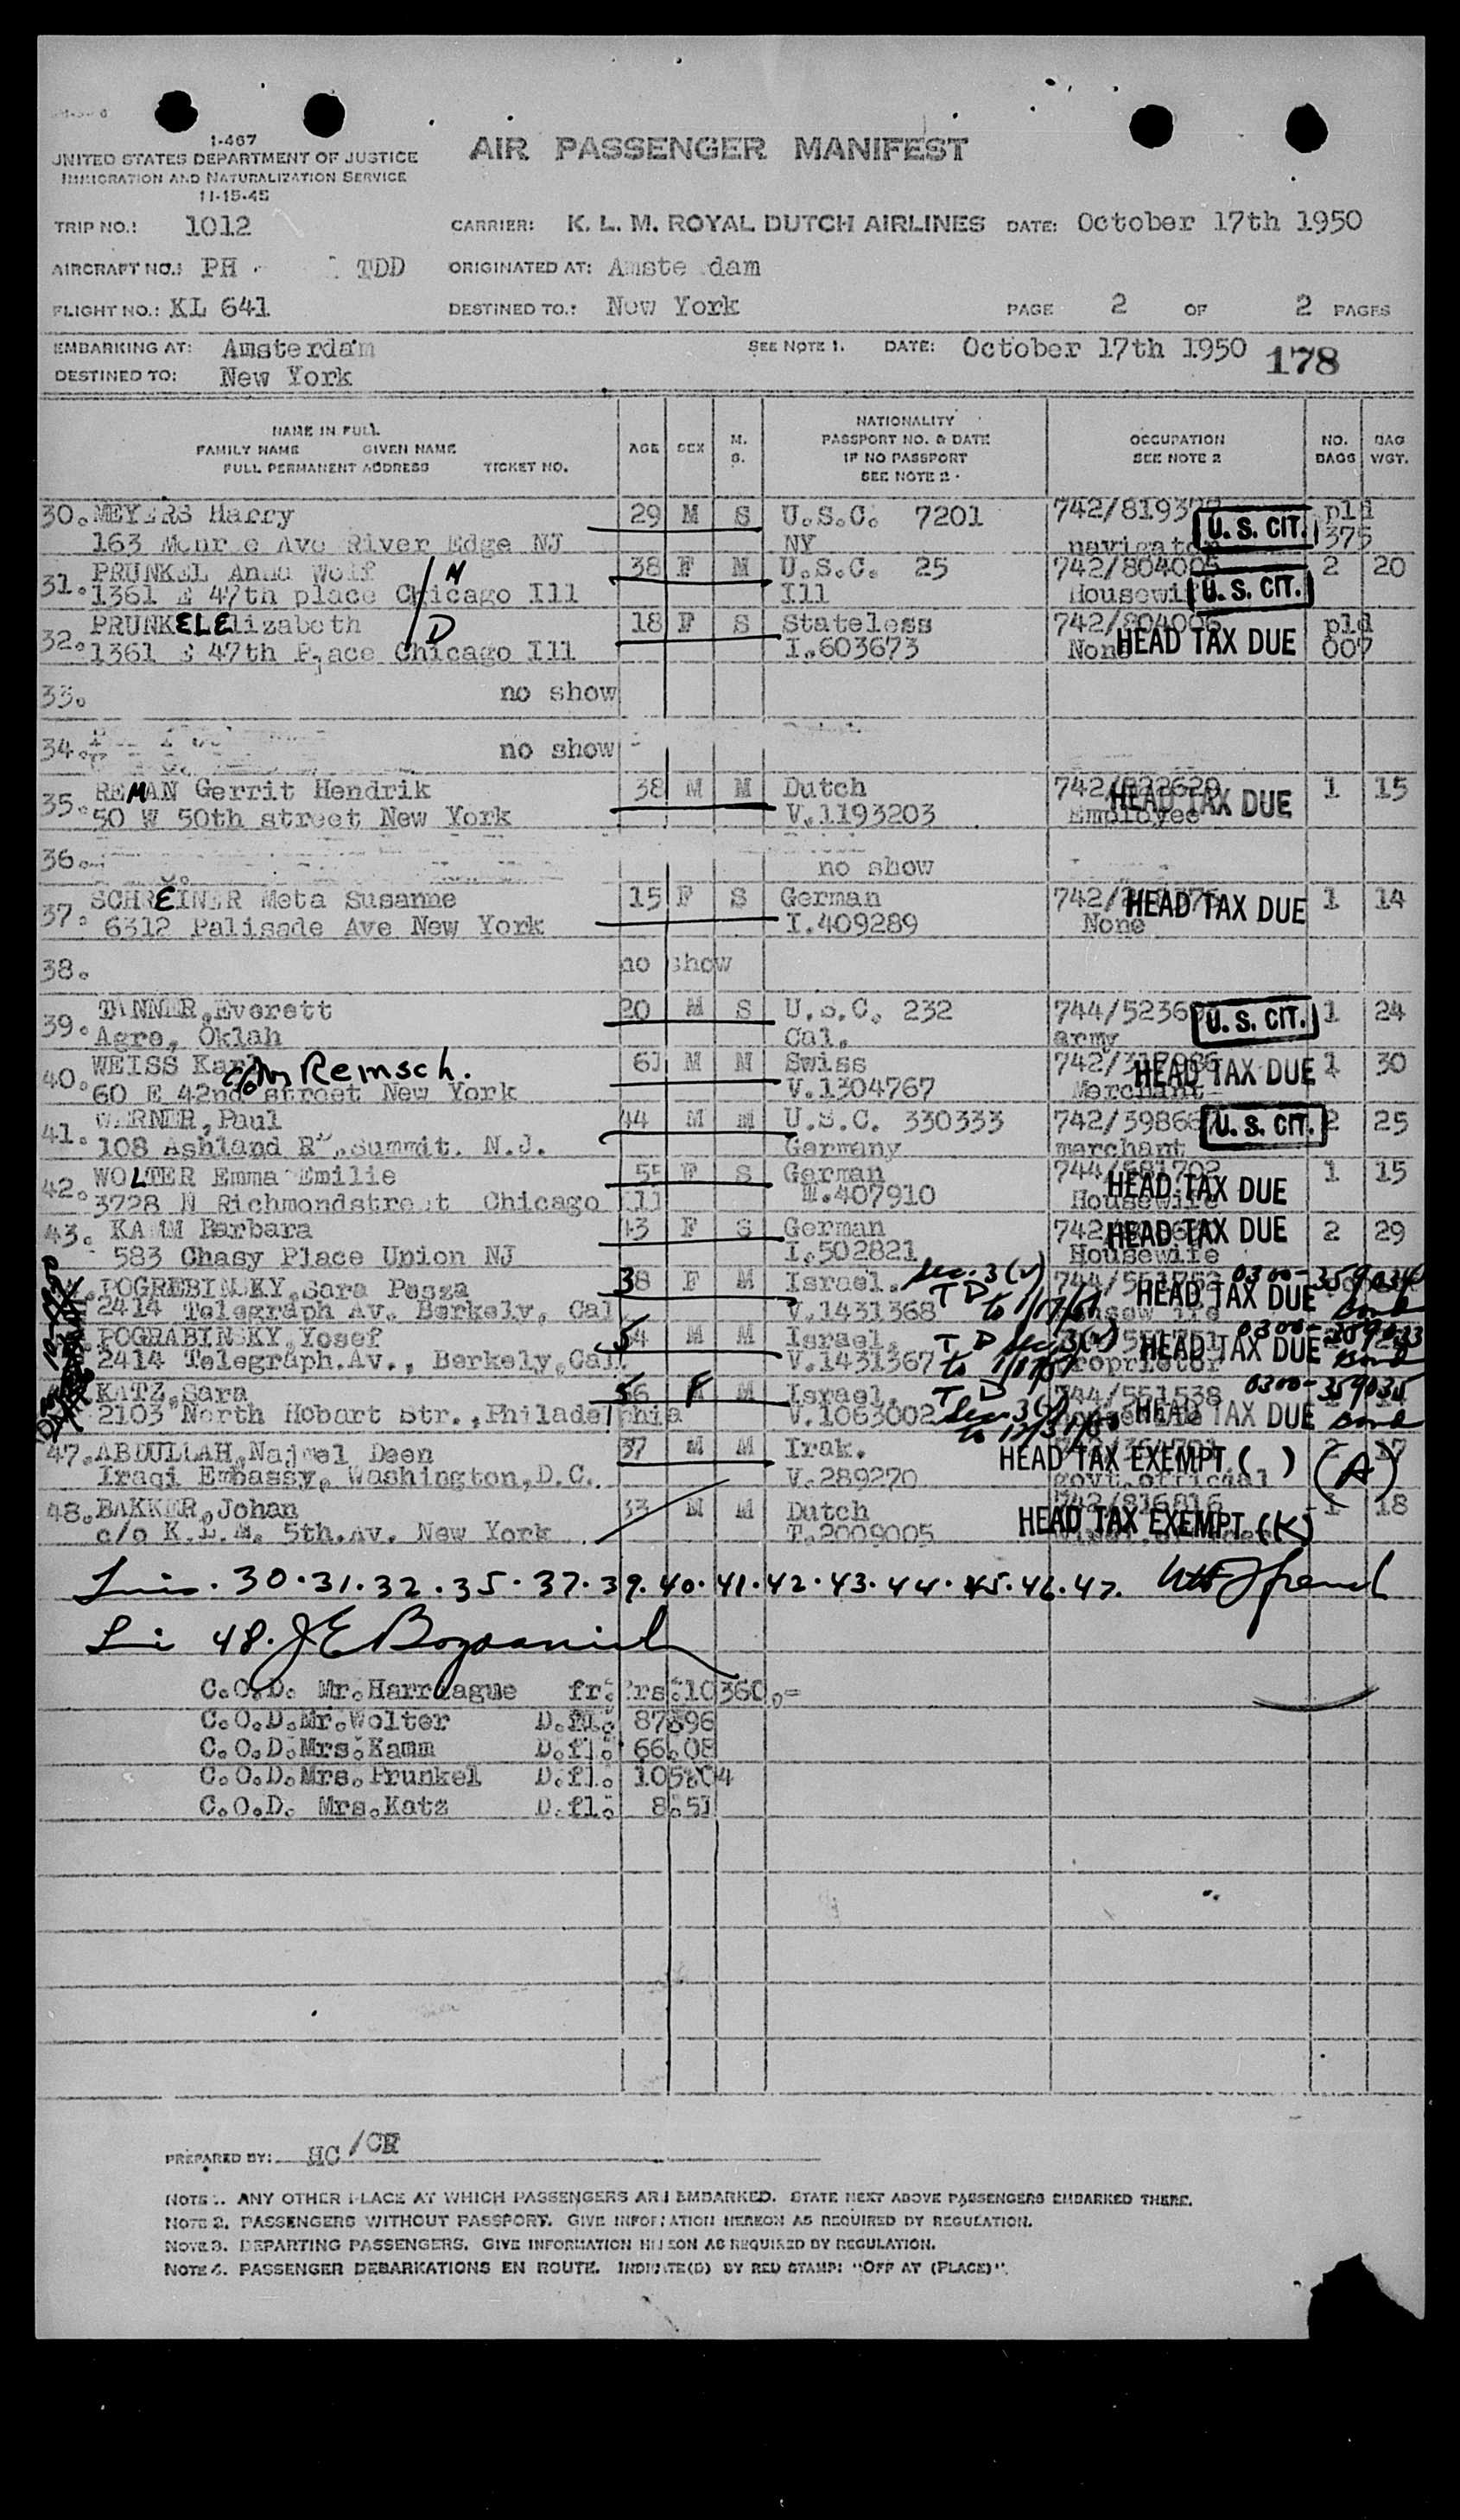 I-467
UNITED STATES DEPARTMENT OF JUSTICE
IMMIGRATION AND NATURALIZATION SERVICE
11-15-45
AIR PASSENGER MANIFEST
TRIP NO.: 1012 CARRIER: K. L. M. ROYAL DUTCH AIRLINES DATE: October 17th 1950
AIRCRAFT NO.: PH - TDD ORIGINATED AT: Amste dam
FLIGHT NO.: KL 641 DESTINED TO.: New York PAGE 2 OF 2 PAGES
EMBARKING AT: Amsterdam SEE NOTE 1. DATE: October 17th 1950 178
DESTINED TO: New York
NAME IN FULL
FAMILY NAME GIVEN NAME
FULL PERMANENT ADDRESS TICKET NO.
AGE SEX M. S.
NATIONALITY
PASSPORT NO. & DATE
IF NO PASSPORT
SEE NOTE 2
OCCUPATION
SEE NOTE 2
NO. BAGS
BAG WGT.
30. MEYERS Harry 29 M S U.S.C. 7201 U. S. CIT. pld
163 Ave River Edge NJ NY navigator 375
31. PRUNKEL Anna Wolf 38 F M U.S.C. 25 742/804005 2 20
1361 E 47th place Chicago Ill Ill Housewi U. S. CIT.
32. PRUNKEL Elizabeth D 18 F S Stateless 742/804006 pld
1361 E 47th Place Chicago Ill I.603673 None HEAD TAX DUE 007
33. no show
34. no show
35. REMAN Gerrit Hendrik 38 M M Dutch 742/822620 HEAD TAX DUE 1 15
50 W 50th street New York V.1193203 Employee
36. no show
37. SCHREINER Meta Susanne 15 F S German HEAD TAX DUE 1 14
6312 Palisade Ave New York I.409289 None
38. no show
39. TANNER, Everett 20 M S U.S.C. 232 744/5236 U. S. CIT. 1 24
Agra, Oklah Cal. army
40. WEISS Karl c/o Remsch. 61 M M Swiss HEAD TAX DUE 1 30
60 E 42nd street New York V.1304767 Merchant
41. WERNER, Paul 44 M M U.S.C. 330333 742/39866 U. S. CIT. 2 25
108 Ashland R , Summit. N.J. Germany merchant
42. WOLTER Emma Emilie 55 F S German 744/581702 HEAD TAX DUE 1 15
3728 N Richmondstreet Chicago Ill 407910 Housewife
43. KAMM Barbara 43 F S German HEAD TAX DUE 2 29
583 Chasy Place Union NJ I.502821 Housewife
POGREBINSKY, Sara Pesza 38 F M Israel. Sec. 3(2) T D HEAD TAX DUE 0300-359034
2414 Telegraph Av. Berkely, Cal V.1431368 Bond
POGRABINSKY, Yosef 54 M M Israel. T D HEAD TAX DUE 0300-359033
2414 Telegraph.Av., Berkely, Cal. V.1431367 roprietor Bond
KATZ, Sara 56 F M Israel. T D 744/551538 0300-359035
2103 North Hobart Str., Philadelphia V.1063002 HEAD TAX DUE Bond
47. ABDULLAH, Najmel Deen 37 M M Irak. HEAD TAX EXEMPT ( ) (A) 17
Iraqi Embassy, Washington, D.C. V.289270 govt.official
48. BAKKER, Johan 33 M M Dutch 742/816816 1 18
c/o K.L.M. 5th.Av. New York T.2009005 HEAD TAX EXEMPT (K)
Lines. 30.31.32.35.37.39.40.41.42.43.44.45.46.47.
Li 48. J E
C.O.D. Mr. fr. frs. 10360.-
C.O.D. Mr. Wolter D.fl. 87896
C.O.D. Mrs. Kamm D.fl. 66.08
C.O.D. Mrs. Prunkel D.fl. 105.04
C.O.D. Mrs. Katz D.fl. 8.51
PREPARED BY: HC/CR
NOTE 1. ANY OTHER PLACE AT WHICH PASSENGERS ARE EMBARKED. STATE NEXT ABOVE PASSENGERS EMBARKED THERE.
NOTE 2. PASSENGERS WITHOUT PASSPORT. GIVE INFORMATION HEREON AS REQUIRED BY REGULATION.
NOTE 3. DEPARTING PASSENGERS. GIVE INFORMATION HEREON AS REQUIRED BY REGULATION.
NOTE 4. PASSENGER DEBARKATIONS EN ROUTE. INDICATE(D) BY RED STAMP: "OFF AT (PLACE)".